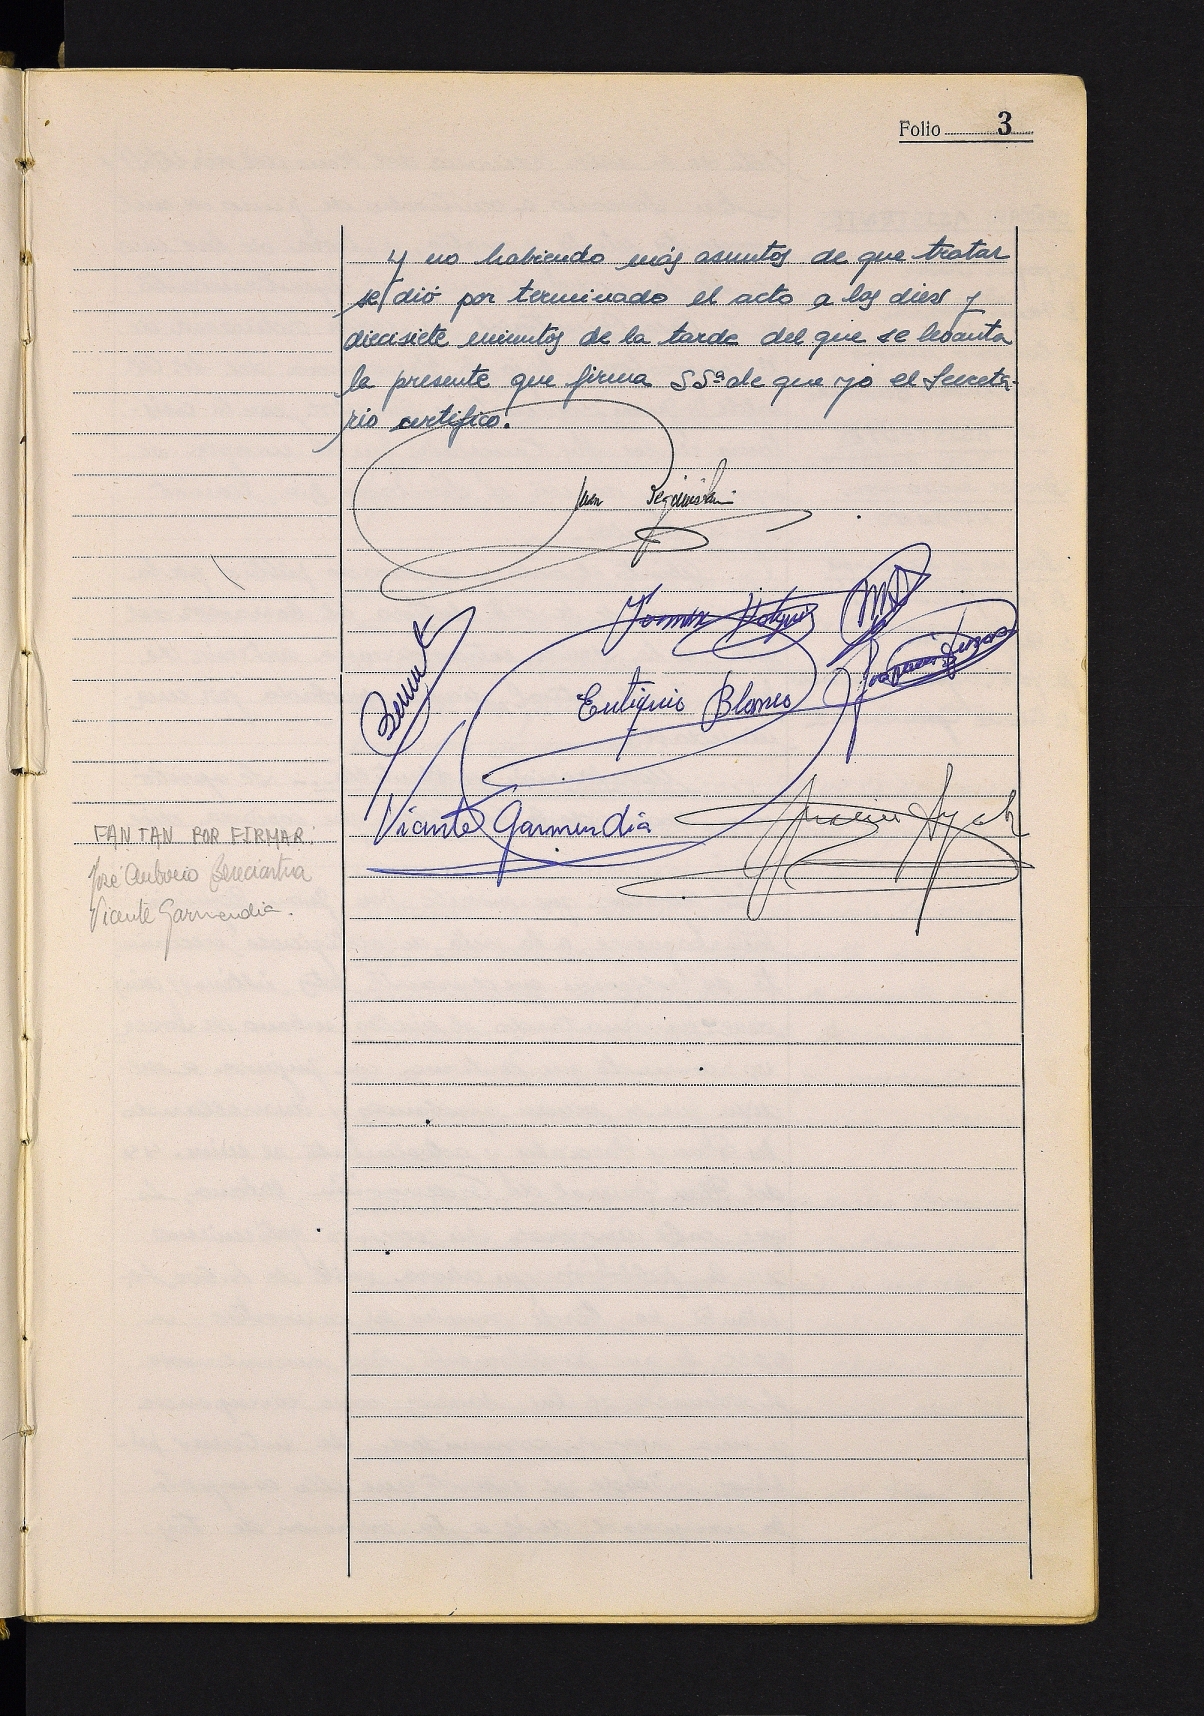 Folio 3
y no habiendo más asuntos de que tratar
se dió por terminado el acto a las diez y
diecisiete minutos de la tarde del que se levanta
la presente que firma SSª de que yo el Secreta-
rio certifico.
Juan
Eutiquio Blanco
Vicente Garmendia
FANTAN POR FIRMAR:
José Antonio Bereciartua
Vicente Garmendia.